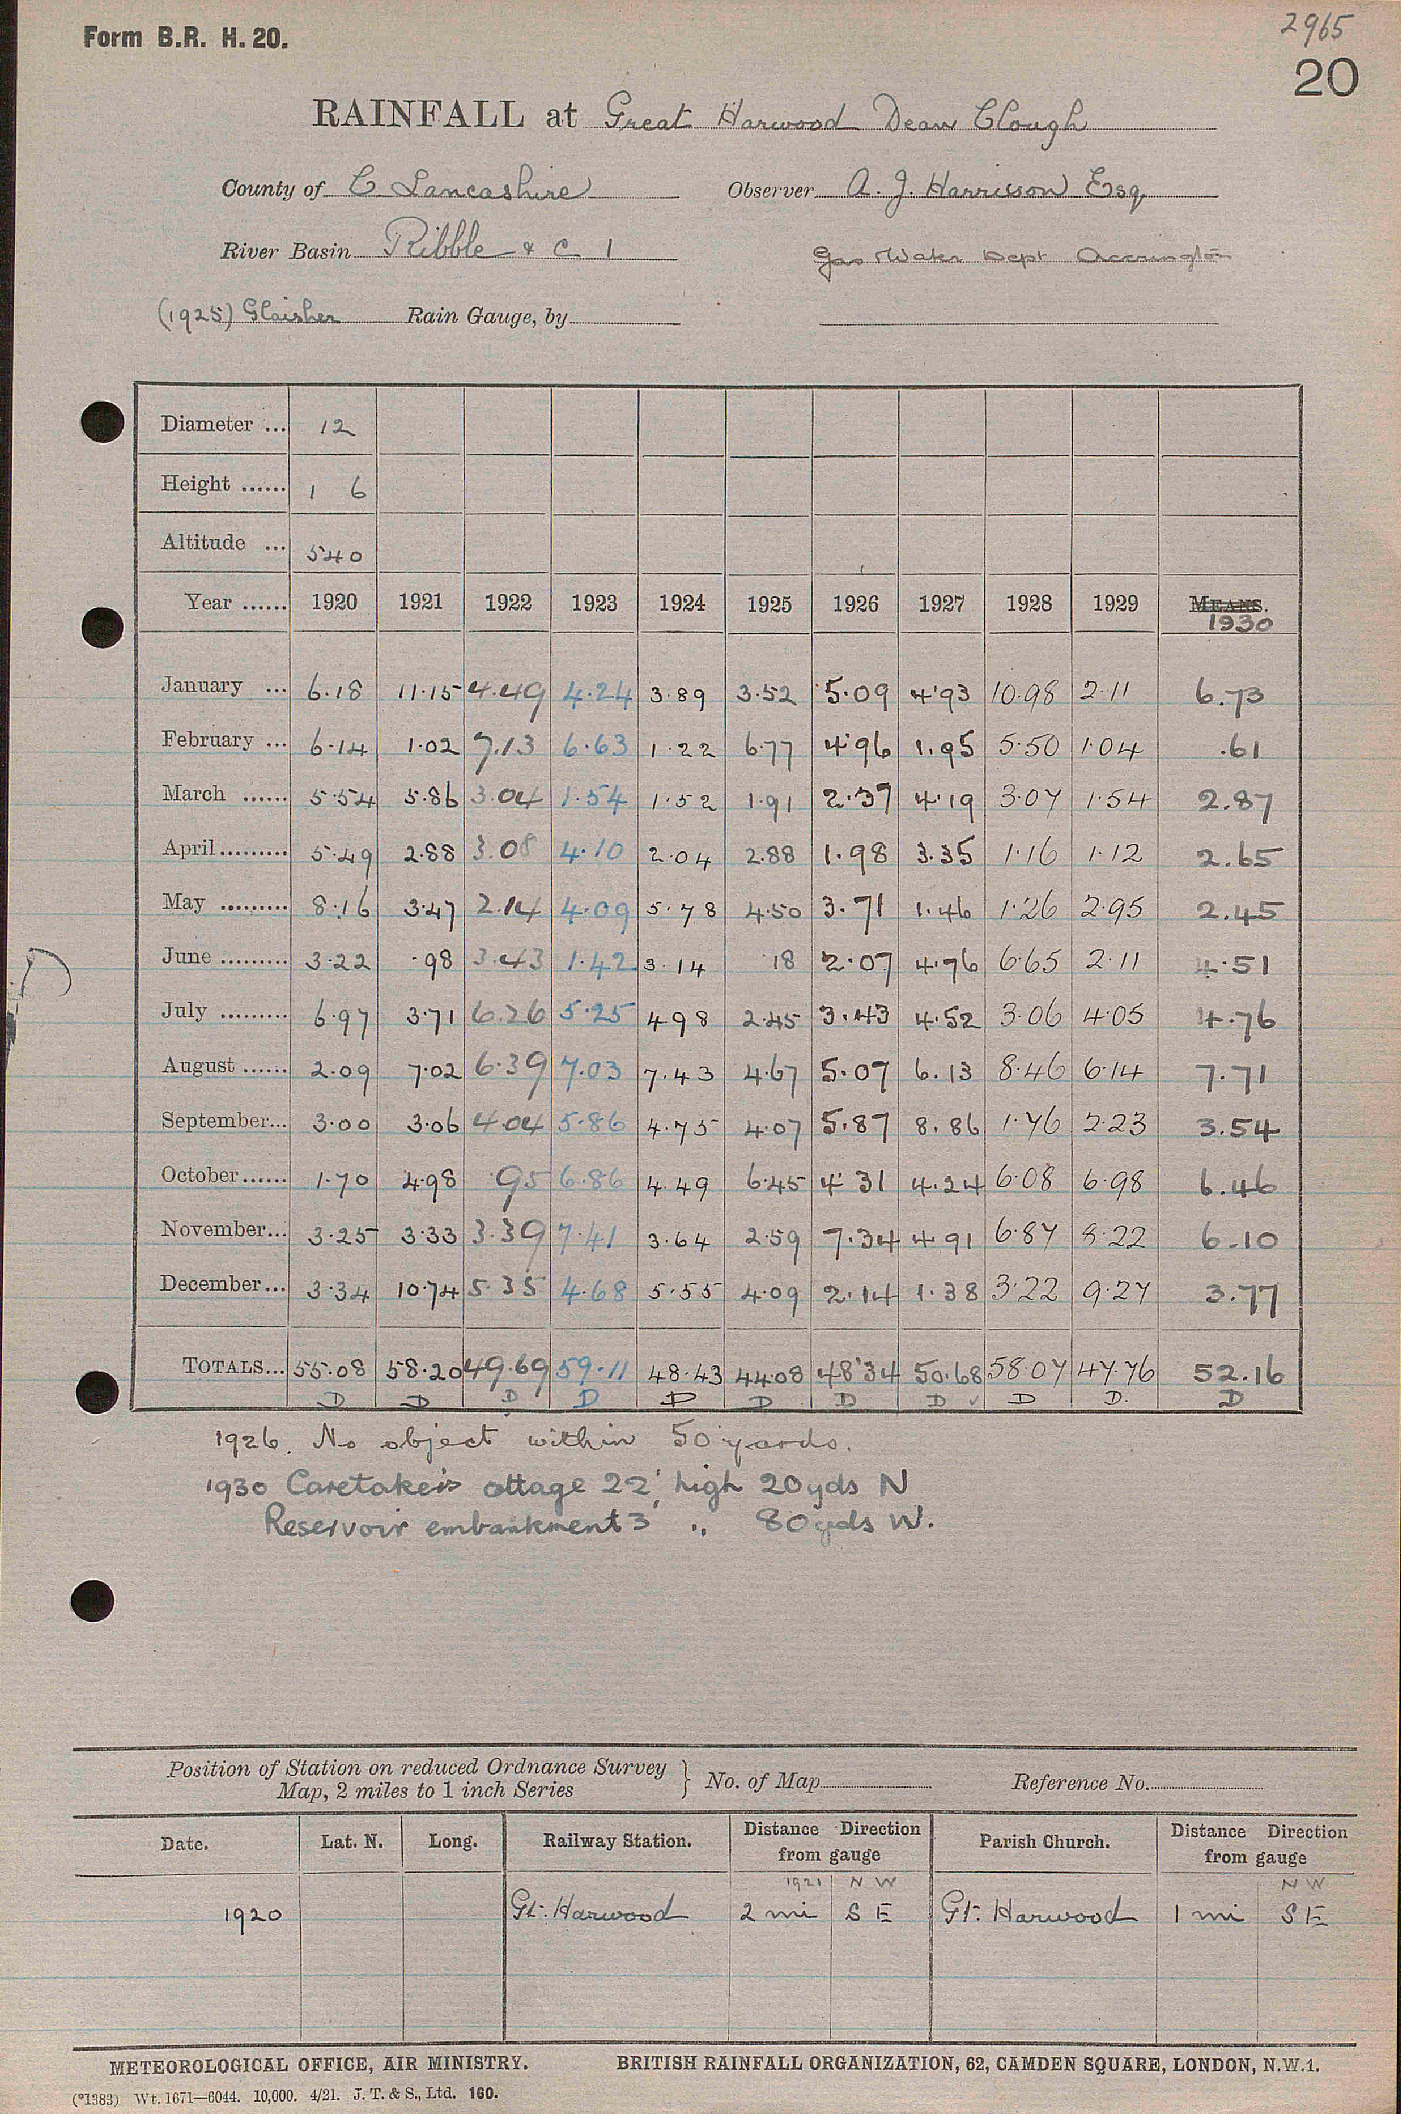 Form B.R. H. 20.
2965
20
RAINFALL at Great Harwood Dean Clough
County of C Lancashire Observer A. J. Harrison Esq
River Basin Ribble & C 1 Gas Water Dept Accrington
(1925) Glaisher Rain Gauge, by
Diameter ... 12
Height ...... 1 6
Altitude ... 540
Year ...... 1920 1921 1922 1923 1924 1925 1926 1927 1928 1929 MEANS. 1930
January ... 6.18 11.15 4.49 4.24 3.89 3.52 5.09 4.93 10.98 2.11 6.73
February ... 6.14 1.02 7.13 6.63 1.22 6.77 4.96 1.95 5.50 1.04 .61
March ...... 5.54 5.86 3.04 1.54 1.52 1.91 2.37 4.19 3.07 1.54 2.87
April ......... 5.49 2.88 3.08 4.10 2.04 2.88 1.98 3.35 1.16 1.12 2.65
May ......... 8.16 3.47 2.14 4.09 5.78 4.50 3.71 1.46 1.26 2.95 2.45
June ......... 3.22 .98 3.43 1.42 3.14 .18 2.07 4.76 6.65 2.11 4.51
July ......... 6.97 3.71 6.26 5.25 4.98 2.45 3.43 4.52 3.06 4.05 4.76
August ...... 2.09 7.02 6.39 7.03 7.43 4.67 5.07 6.13 8.46 6.14 7.71
September... 3.00 3.06 4.04 5.86 4.75 4.07 5.87 8.86 1.76 2.23 3.54
October...... 1.70 4.98 .95 6.86 4.49 6.45 4.31 4.24 6.08 6.98 6.46
November... 3.25 3.33 3.39 7.41 3.64 2.59 7.34 4.91 6.87 8.22 6.10
December... 3.34 10.74 5.35 4.68 5.55 4.09 2.14 1.38 3.22 9.27 3.77
TOTALS... 55.08 58.20 49.69 59.11 48.43 44.08 48.34 50.68 58.07 47.76 52.16
D D D D D D D D ✓ D D. D
1926. No object within 50 yards.
1930 Caretakers ottage 22' high 20yds N
Reservoir embankment 3' „ 80yds W.
Position of Station on reduced Ordnance Survey
Map, 2 miles to 1 inch Series } No. of Map Reference No.
Date. Lat. N. Long. Railway Station. Distance Direction from gauge Parish Church. Distance Direction from gauge
1921 N W N W
1920 Gt. Harwood 2 mi S E Gt. Harwood 1 mi S E
METEOROLOGICAL OFFICE, AIR MINISTRY. BRITISH RAINFALL ORGANIZATION, 62, CAMDEN SQUARE, LONDON, N.W.1.
(*1383) Wt. 1671—6044. 10,000. 4/21. J. T. & S., Ltd. 160.